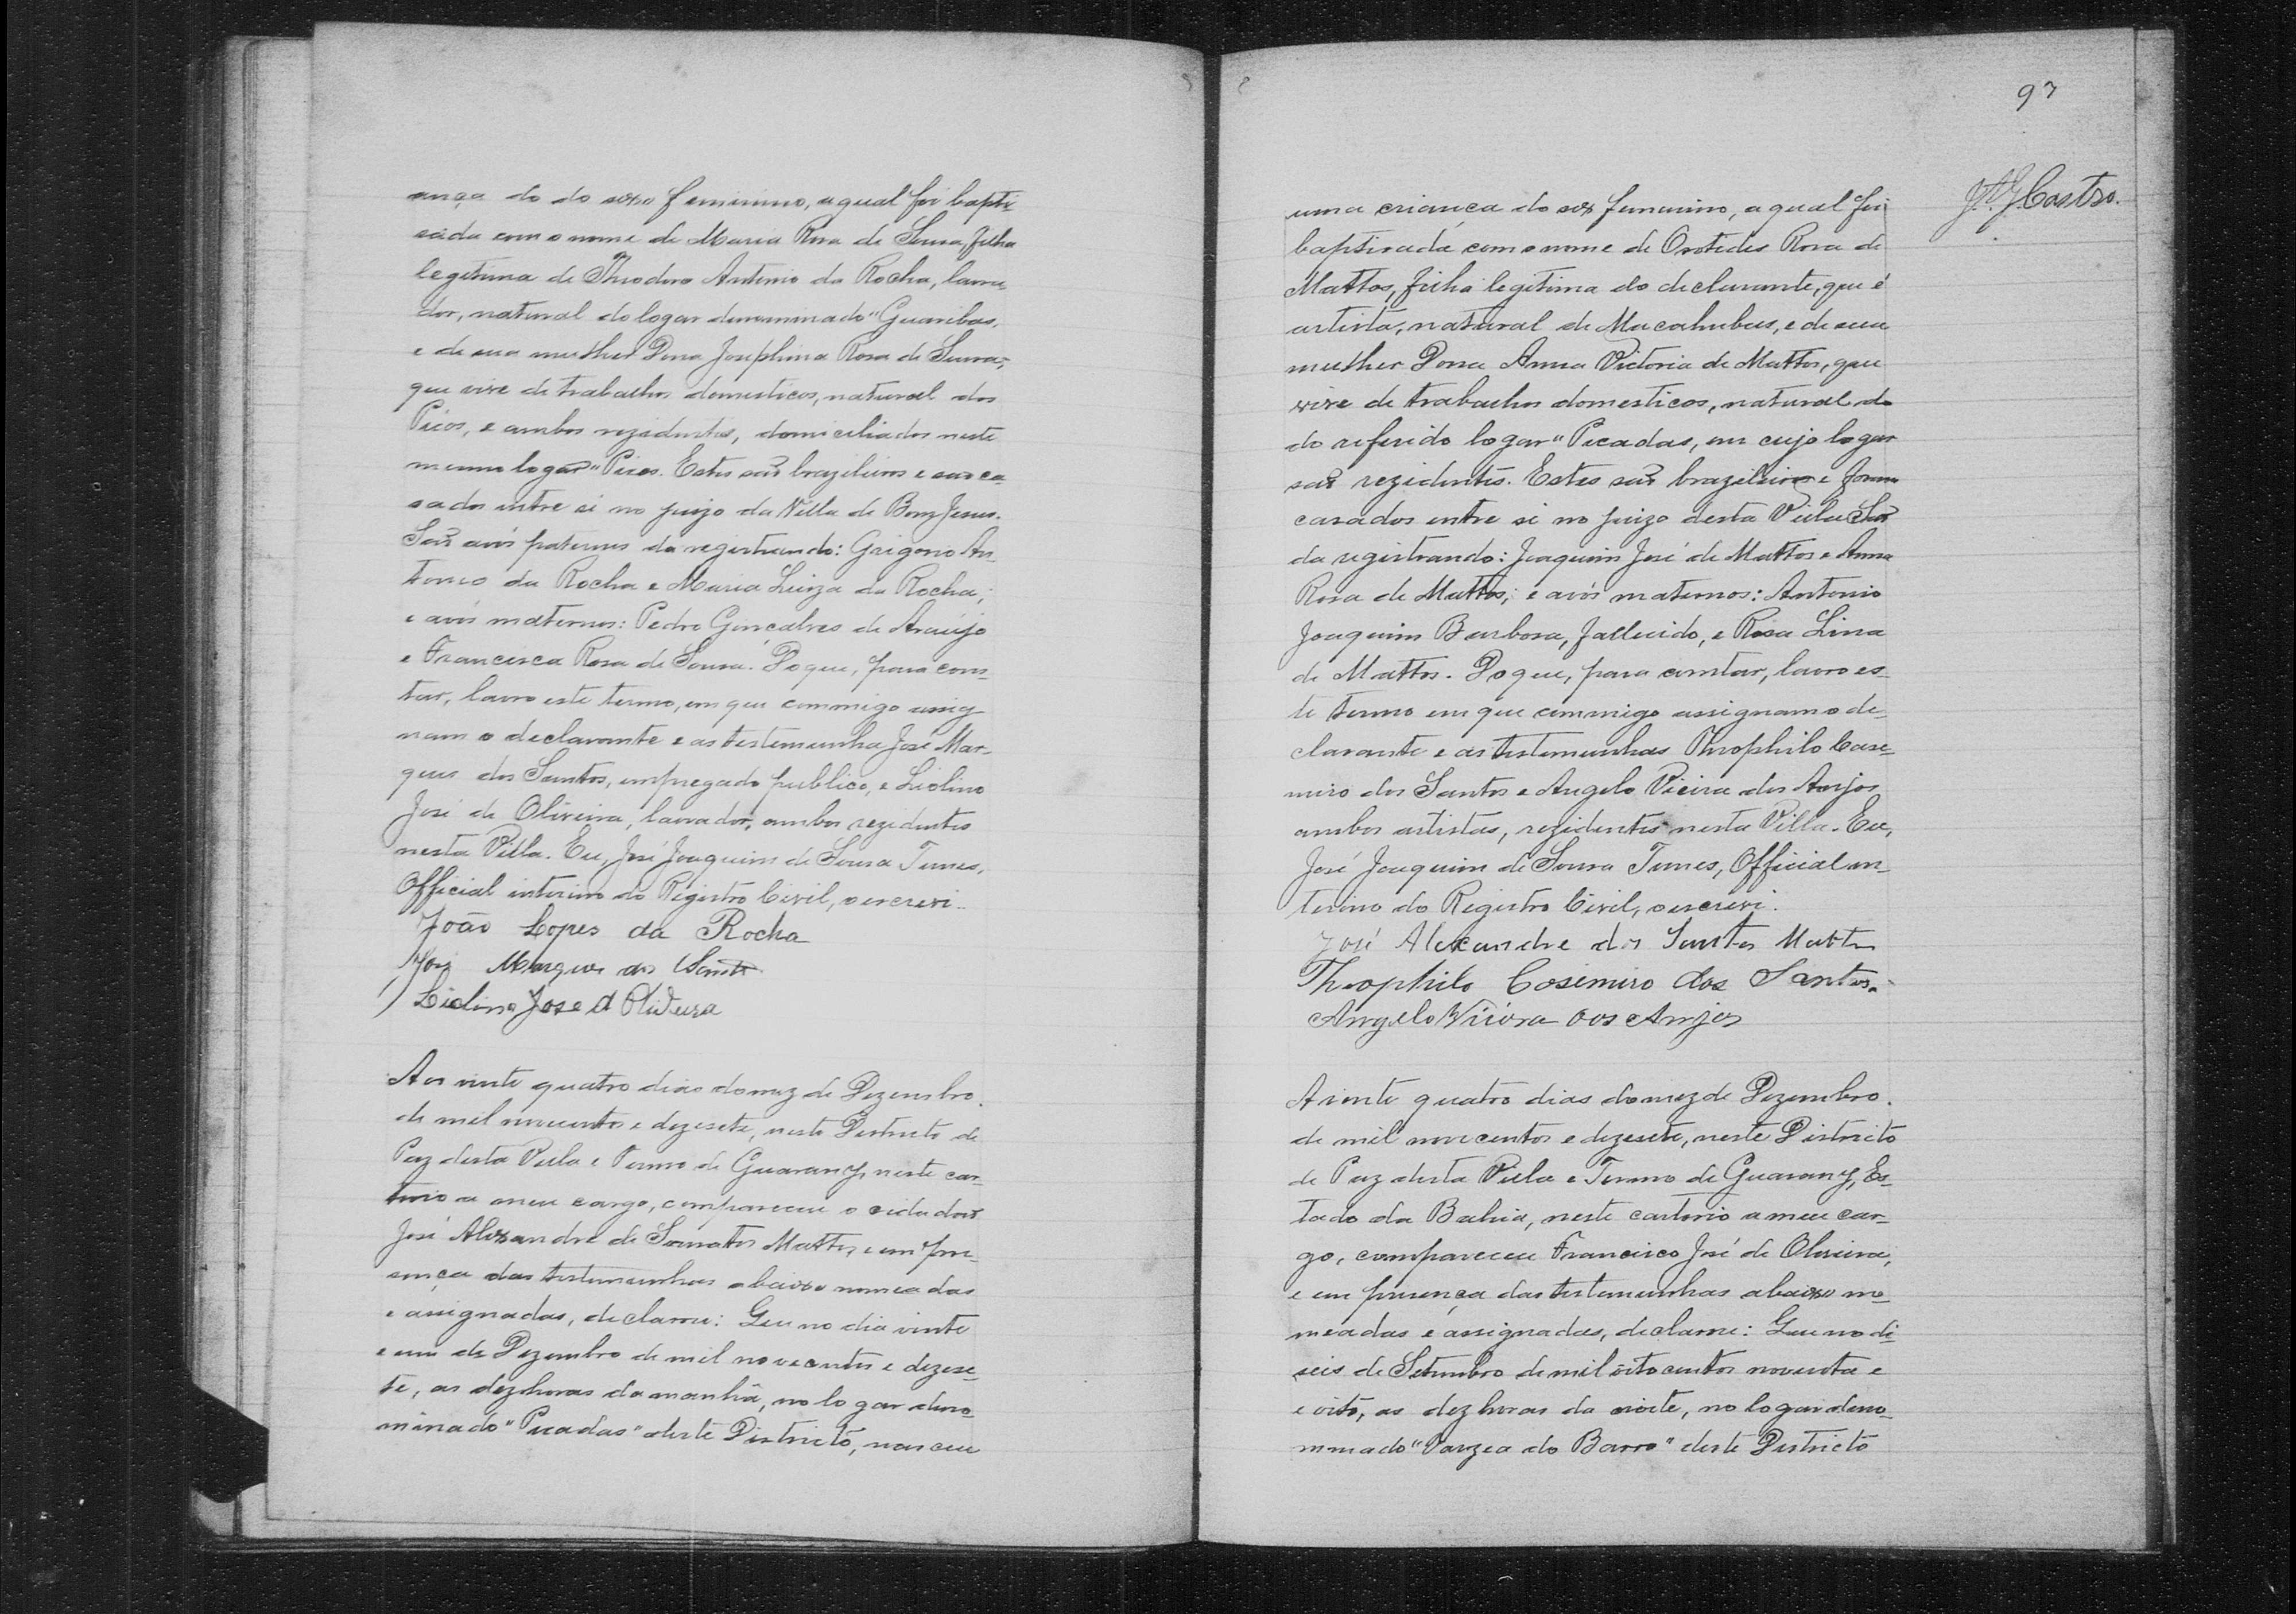 ança do do sexo feminino, a qual foi bapti-
sada com o nome de Maria Rosa de Sousa, filha
legitima de Theodoro Antonio da Rocha, lavra-
dor, natural do logar denominado "Guaribas,
e de sua mulher Dona Josephina Rosa de Sousa,
que vive de trabalhos domesticos, natural dos
Picos, e ambos rezidentes, domiciliados neste
mesmo logar "Picos. Estes são brazileiros e são ca-
sados entre si no juizo da Villa de Bom Jesus.
São avós paternos da registrando: Grigorio An-
tonio da Rocha e Maria Luiza da Rocha;
e avós maternos: Pedro Gonçalves de Araújo
e Francisca Rosa de Sousa. Do que, para cons-
tar, lavro este termo, em que commigo assig-
nam o declarante e as testemunha José Mar-
ques dos Santos, empregado publico, e Liolino
José de Oliveira, lavrador, ambos rezidentes
nesta Villa. Eu, José Joaquim de Sousa Tunes,
Official interino do Registro Civil, o escrevi.
João Lopes da Rocha
José Marques dos Santos
Liolino Jose d Oliveira
Aos vinte quatro dias do mez de Dezembro.
de mil novecentos e dezesete, neste Districto de
Paz desta Villa e Termo de Guarany, neste car-
torio a meu cargo, compareceu o cidadão
José Alexandre de Santos Mattos, e em pre-
sença das testemunhas abaixo nomeadas
e assignadas, declarou: Que no dia vinte
e um de Dezembro de mil novecentos e dezese-
te, as dez horas da manhã, no logar deno-
minado "Picadas" deste Districto, nasceu
97
J. J. Castro.
uma criança do sexo femenino, a qual foi
baptisada com o nome de Rosa de
Mattos, filha legitima do declarante, que é
artista, natural de Macahubas, e de sua
mulher Dona Anna Victoria de Mattos, que
vive de trabalhos domesticos, natural do
do referido logar "Picadas, em cujo logar
são rezidentes. Estes são brazileiros e foram
casados entre si no juizo desta Villa. São
da registrando: Joaquim José de Mattos e Anna
Rosa de Mattos; e avós maternos: Antonio
Joaquim Barbosa, fallecido, e Rosa Lina
de Mattos. Do que, para constar, lavro es-
te termo em que commigo assignam o de-
clarante e as testemunhas Theophilo Case-
miro dos Santos e Angelo Vieira dos Anjos
ambos artistas, rezidentes nesta Villa. Eu,
José Joaquim de Sousa Tunes, Official in-
terino do Registro Civil, o escrevi.
José Alexandre dos Santos Mattos
Theophilo Cosimiro dos Santos.
Angelo Viiera dos Anjos
A vinte quatro dias do mez de Dezembro.
de mil novecentos e dezesete, neste Districto
de Paz desta Villa e Termo de Guarany, Es-
tado da Bahia, neste cartorio a meu car-
go, compareceu Francisco José de Oliveira,
e em presença das testemunhas abaixo no-
meadas e assignadas, declarou: Que no di-
seis de Setembro de mil oitocentos noventa e
e oito, as dez horas da noite, no logar deno-
minado "Varzea do Barro" deste Districto